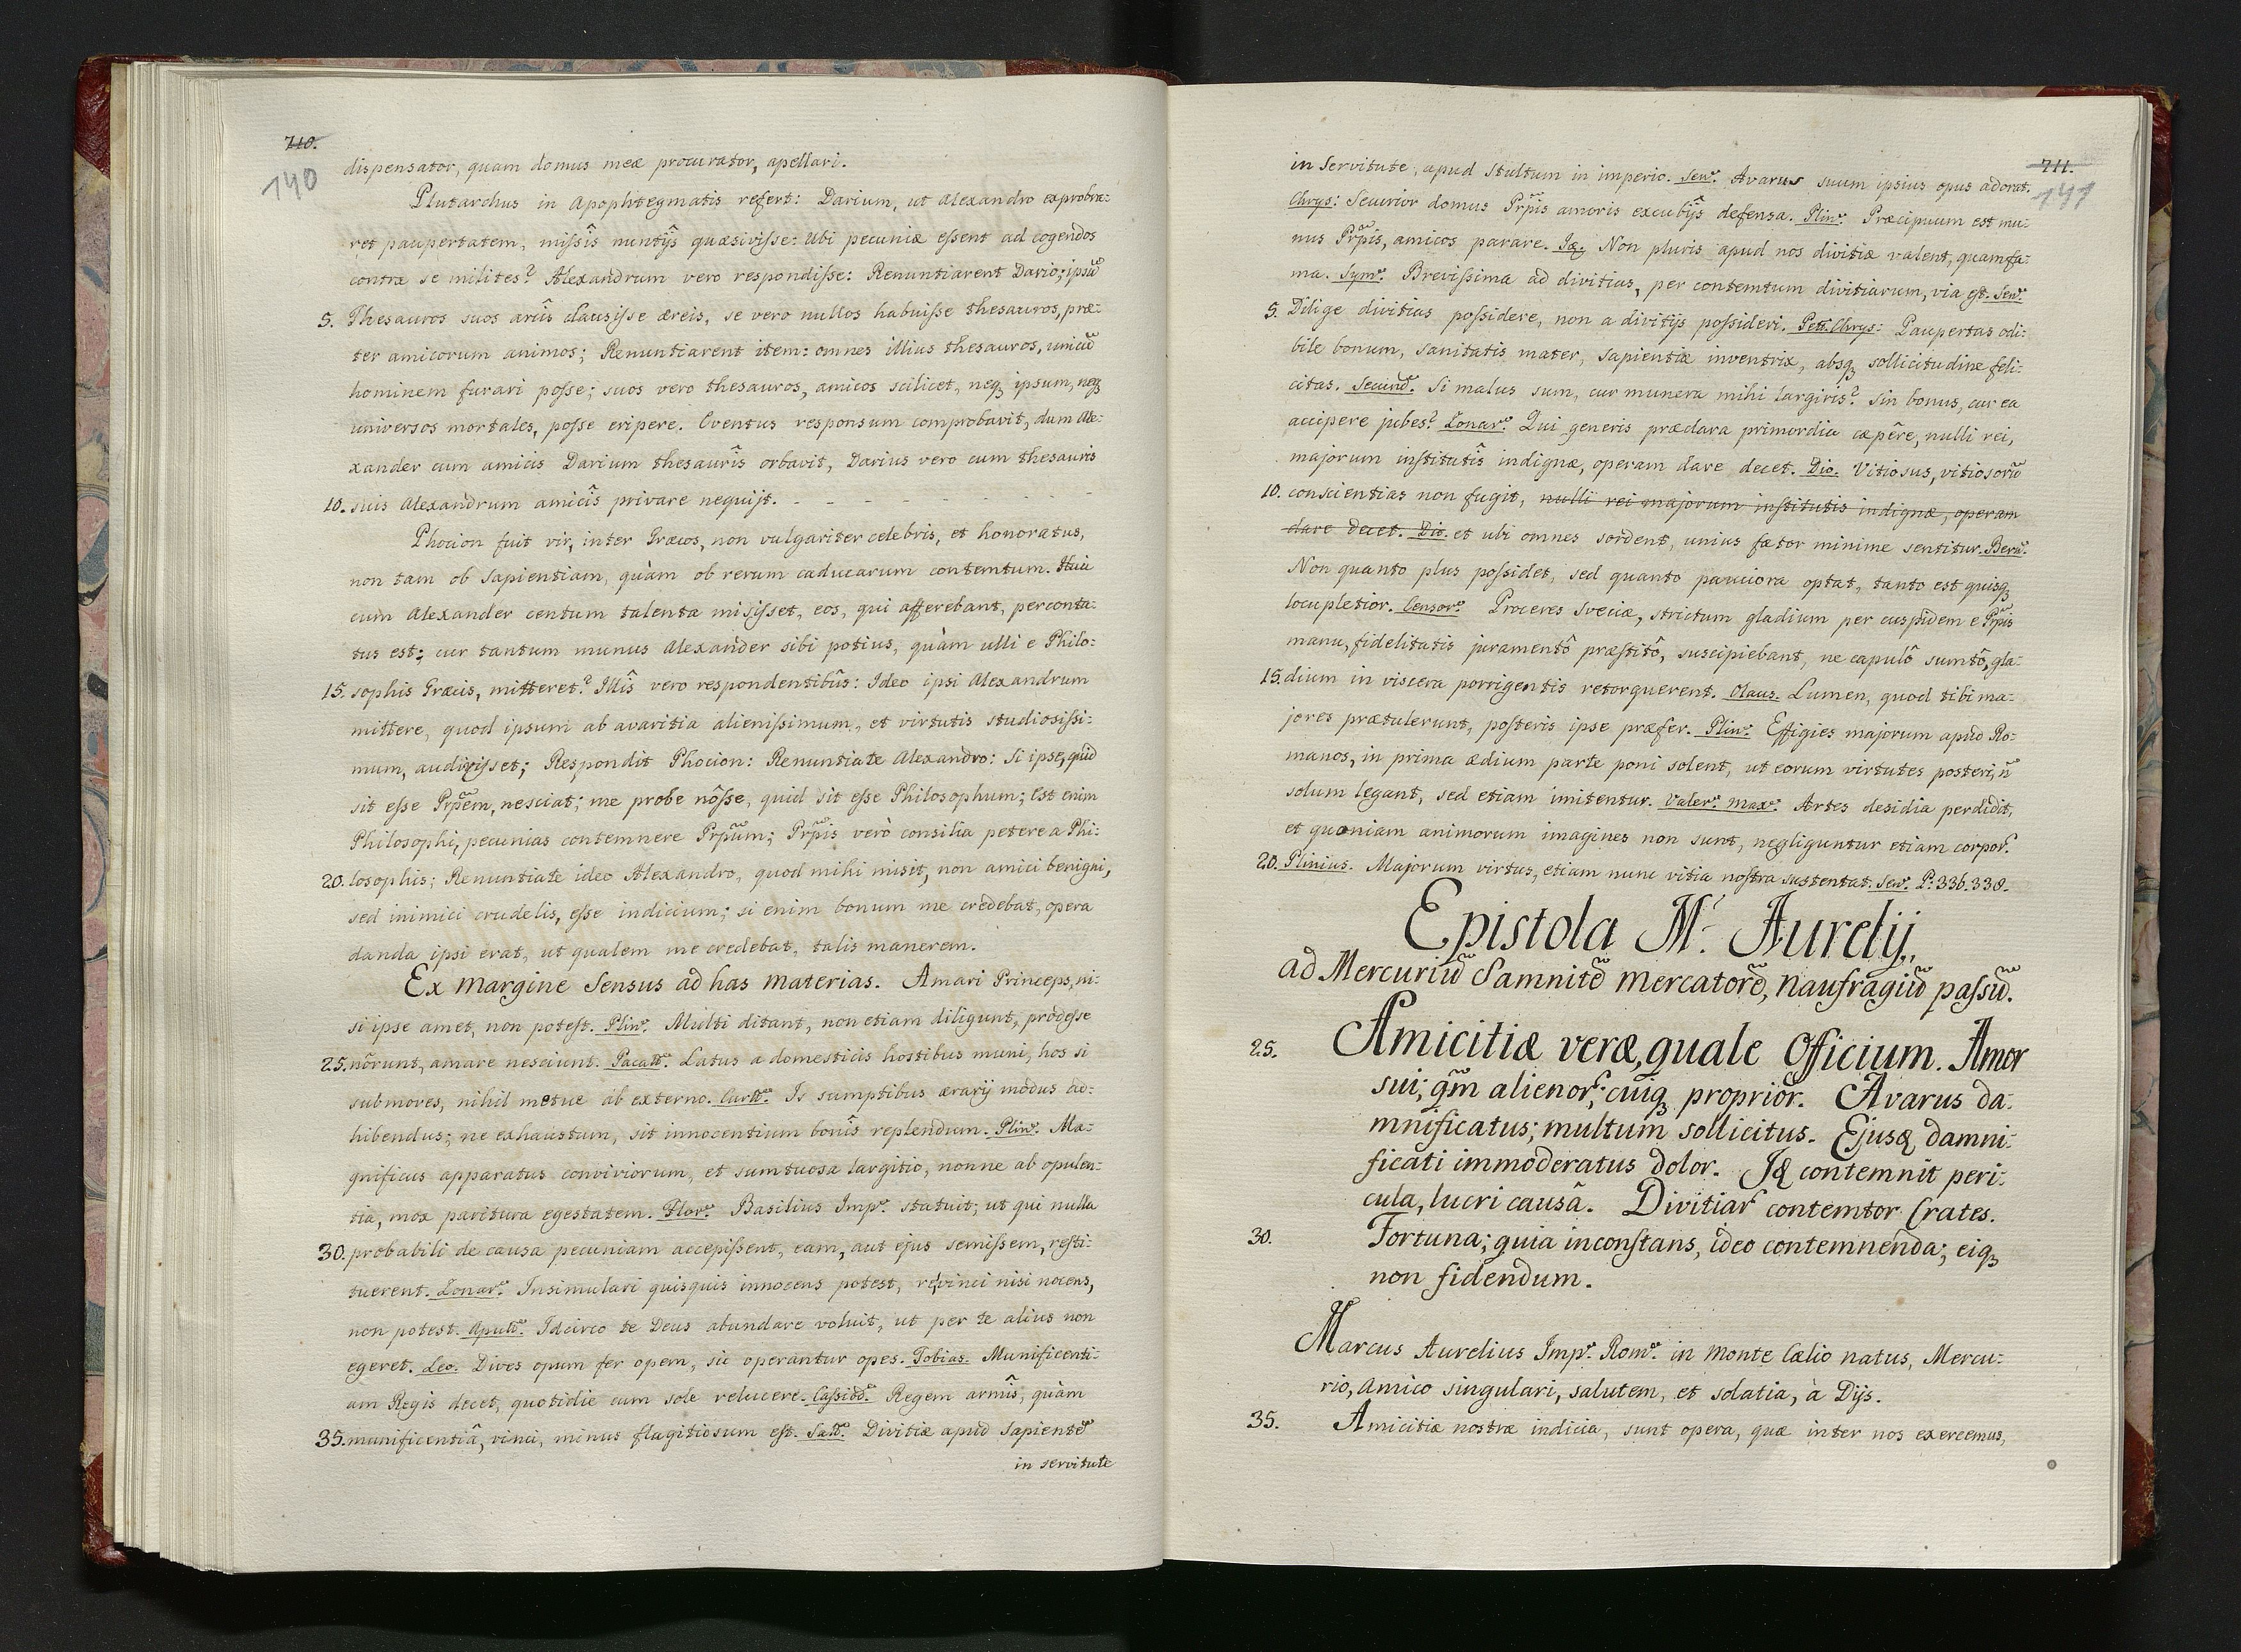 710.
140
dispensator, quam domus meæ procurator, apellari.
Plutarchus in Apophtegmatis refert: Darium, ut Alexandro exprobra:
ret paupertatem, missîs nuntijs quæsivisse: Ubi pecuniæ essent ad cogendos
contra se milites? Alexandrum vero respondisse: Renuntiarent Dario; ipsũ
5. Thesauros suos arcîs clausisse æreis, se vero nullos habuisse thesauros, præ:
ter amicorum animos; Renuntiarent item: omnes illius thesauros, unicũ
hominem furari posse; suos vero thesauros, amicos scilicet, neq₃ ipsum, neq₃
universos mortales, posse eripere. Eventus responsum comprobavit, dum Ale:
xander cum amicis Darium thesaurîs orbavit, Darius vero cum thesauris
10. suis Alexandrum amicîs privare nequijt. - - - - - - - -
Phocion fuit vir, inter Græcos, non vulgariter celebris, et honoratus,
non tam ob sapientiam, quàm ob rerum caducarum contemtum. Huic
cum Alexander centum talenta misisset, eos, qui afferebant, perconta:
tus est; cur tantum munus Alexander sibi potius, quàm ulli e Philo:
15. sophis Græcis, mitteret? Illîs vero respondentibûs: Ideo ipsi Alexandrum
mittere, quod ipsum ab avaritia alienissimum, et virtutis studiosissi:
mum, audivisset; Respondit Phocion: Renuntiate Alexandro: Si ipse, quid
sit esse Prp̃em, nesciat; me probe nôsse, quid sit esse Philosophum; Est enim
Philosophi, pecunias contemnere Prp̃um; Prp̃is verò consilia petere a Phi:
20. losophis; Renuntiate ideo Alexandro, quod mihi misit, non amici benigni,
sed inimici crudelis, esse indicium; si enim bonum me credebat, opera
danda ipsi erat, ut qualem me credebat, talis manerem.
Ex margine Sensus ad has materias. Amari Princeps, ni:
si ipse amet, non potest. Plin⁹. Multi ditant, non etiam diligunt, prodesse
25. nôrunt, amare nesciunt. Pacatt⁹. Latus a domesticis hostibus muni, hos si
submoves, nihil metue ab externo. Curtt⁹. Is sumptibus ærarij modus ad:
hibendus; ne exhaustum, sit innocentium bonîs replendum. Plin⁹. Ma:
gnificus apparatus conviviorum, et sumtuosa largitio, nonne ab opulen:
tia, mox paritura egestatem. Flor⁹. Basilius Imp⁹. statuit; ut qui nulla
30. probabili de causa pecuniam accepissent, eam, aut ejus semissem, resti:
tuerent. Zonar⁹. Insimulari quisquis innocens potest, revinci nisi nocens,
non potest. Apulẽ⁹. Idcirco te Deus abundare voluit, ut per te alius non
egeret. Leo. Dives opum fer opem, sic operantur opes. Tobias. Munificenti:
am Regis decet, quotidie cum sole relucere. Cassiod⁹. Regem armîs, quàm
35. munificentiâ, vinci, minus flagitiosum est. Sall⁹. Divitiæ apud sapientẽ
in servitute
711.
141
in Servitute, apud stultum in imperio. Sen⁹. Avarus suum ipsius opus adorat.
Chrys: Securior domus Prp̃is amoris excubijs defensa. Plin⁹. Præcipuum est mu:
nus Prp̃is, amicos parare. Iq. Non pluris apud nos divitiæ valent, quam fa:
ma. Sym⁹. Brevissima ad divitias, per contemtum divitiarum, via est. Sen⁹.
5. Dilige divitias possidere, non a divitijs possideri. Pett. Chrys: Paupertas odi:
bile bonum, sanitatis mater, sapientiæ inventrix, absq₃ sollicitudine feli:
citas. Secund⁹. Si malus sum, cur munera mihi largiris? Sin bonus, cur ea
accipere jubes? Zonar⁹. Qui generis præclara primordia cæpêre, nulli rei,
majorum institutîs indignæ, operam dare decet. Dio. Vitiosus, vitiosorũ
10. conscientias non fugit, nulli rei majorum institutis indignæ, operam
dare decet. Dio. et ubi omnes sordent, unius fætor minime sentitur. Bern⁹.
Non quanto plus possidet, sed quanto pauciora optat, tanto est quisq₃
locupletior. Censor⁹. Proceres Sveciæ, strictum gladium per cuspidem e Prp̃is
manu, fidelitatis juramentô præstitô, suscipiebant, ne capulô sumtô, gla:
15. dium in viscera porrigentis retorquerent. Olaus. Lumen, quod tibi ma:
jores prætulerunt, posteris ipse præfer. Plin⁹. Effigies majorum apud Ro:
manos, in prima ædium parte poni solent, ut eorum virtutes posteri, ñ
solum legant, sed etiam imitentur. Valer⁹. Max⁹. Artes desidia perdidit,
et quoniam animorum imagines non sunt, negliguntur etiam corpor̃.
20. Plinius. Majorum virtus, etiam nunc vitia nostra sustentat. Sen⁹. P: 336. 338.
Epistola M: Aurelij,
ad Mercuriũ Samnitẽ Mercatorẽ, naufragiũ passũ.
25. Amicitiæ veræ, quale Officium. Amor
sui; qm̃ alienor̃; cuiq₃ proprior. Avarus da:
mnificatus; multum sollicitus. Ejusq damni:
ficati immoderatus dolor. Iq contemnit peri:
cula, lucri causâ. Divitiar̃ contemtor Crates.
30. Fortuna; quia inconstans, ideo contemnenda; eiq₃
non fidendum.
Marcus Aurelius Imp⁹. Rom⁹. in Monte Cælio natus, Mercu:
rio, Amico singulari, salutem, et solatia, à Dijs.
35. Amicitiæ nostræ indicia, sunt opera, quæ inter nos exercemus,